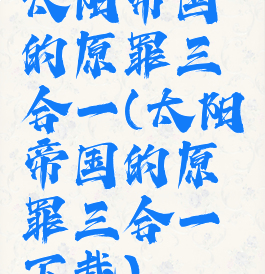 太阳帝国
的原罪三
合一(太阳
帝国的原
罪三合一
下载)